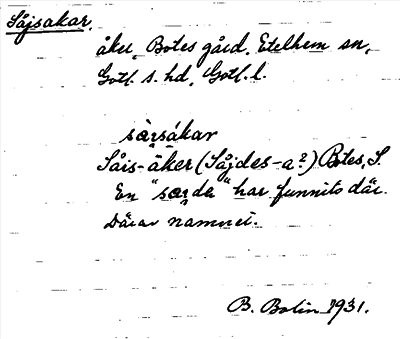 Såjsakar.
åker, Botes gård, Etelhem sn,
Gotl. s. hd, Gotl. l.
sàrsákar
Såis-åker (Såjdes-a?) Botes, S.
En "sarda" har funnits där.
Därav namnet.
B. Bolin 1931.